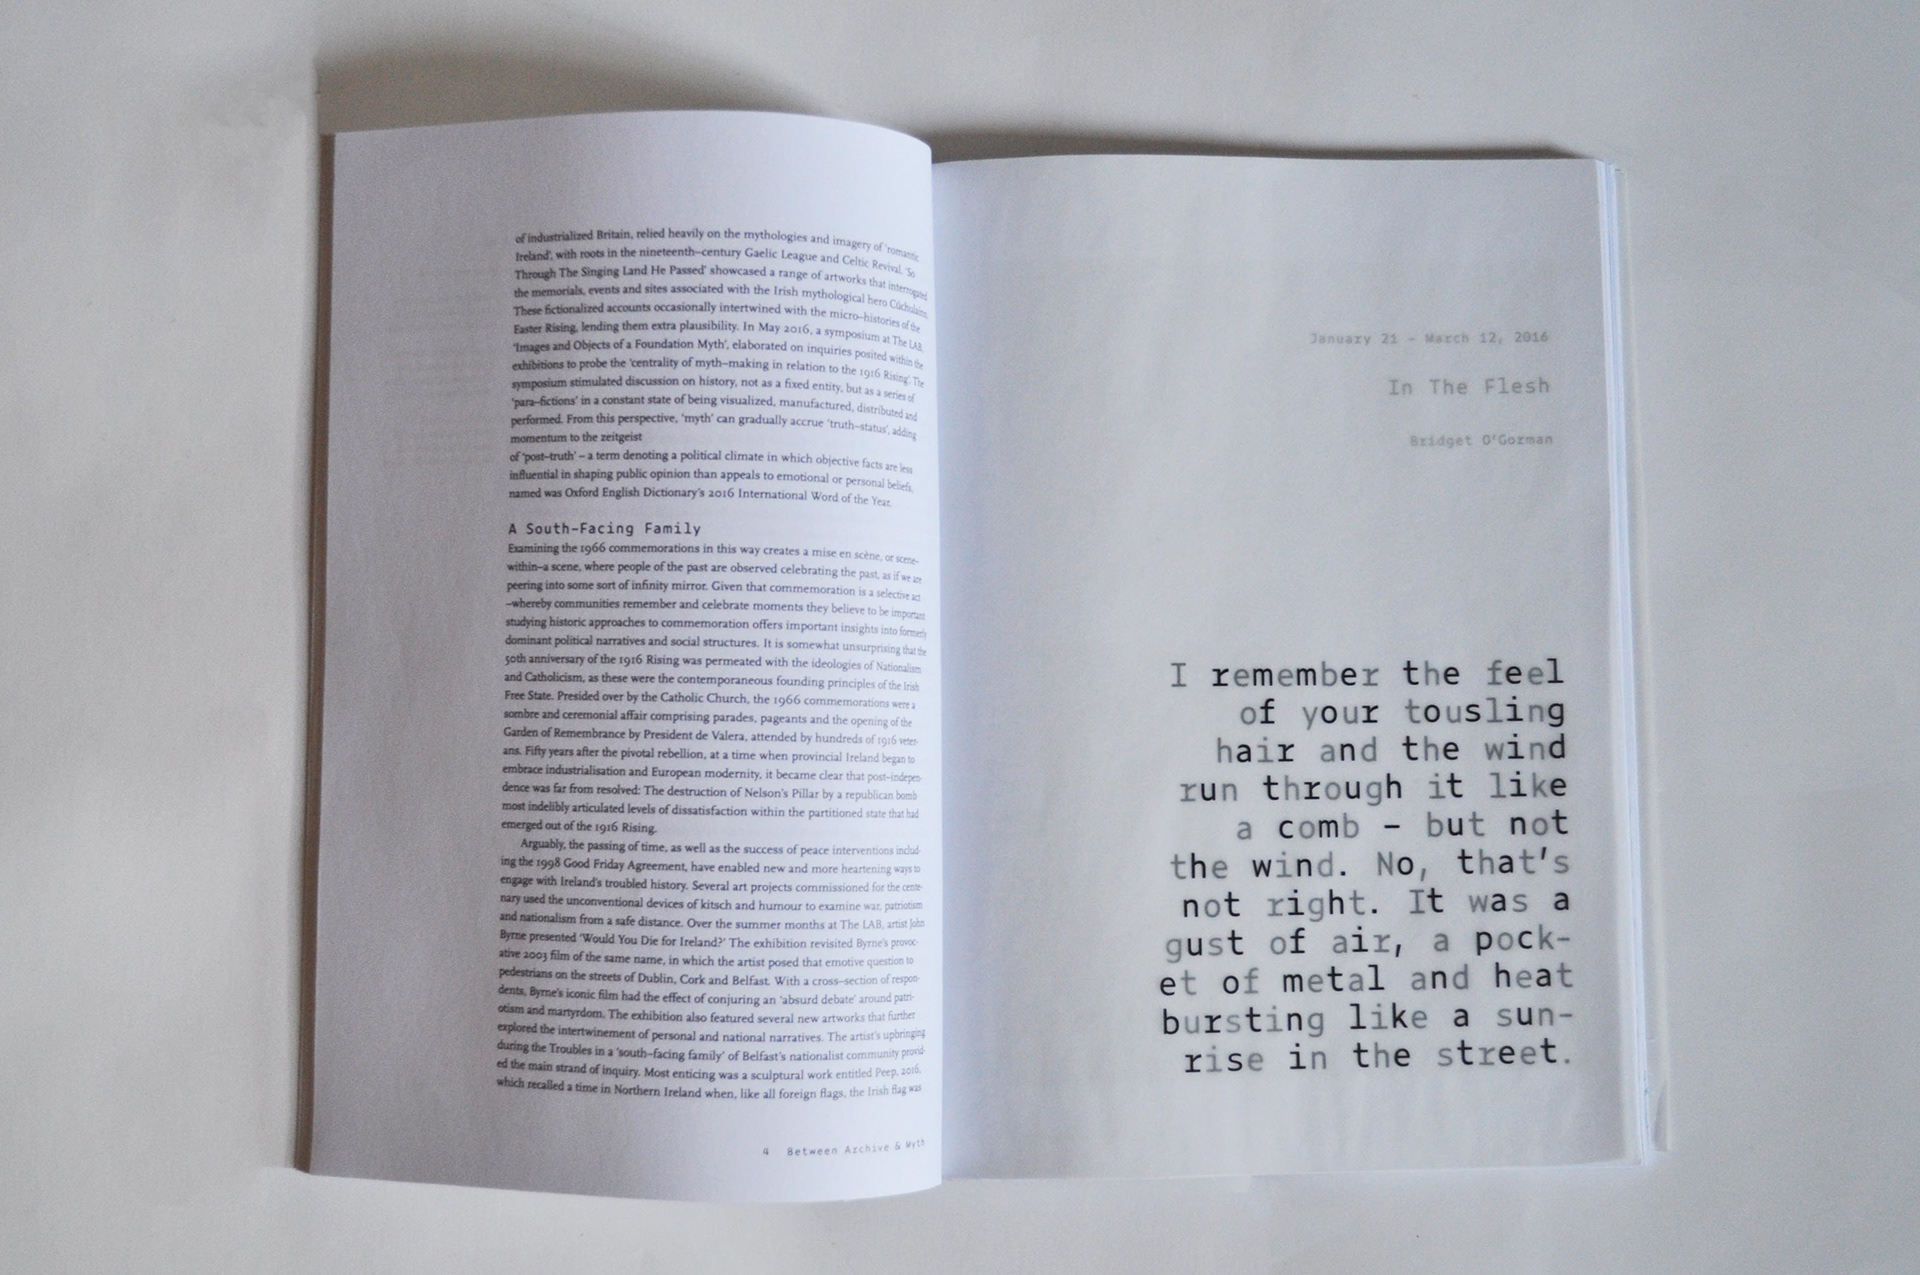 of industrialized Britain, relied heavily on the mythologies and imagery of 'romantic
Ireland', with roots in the nineteenth–century Gaelic League and Celtic Revival. 'So
Through The Singing Land He Passed' showcased a range of artworks that interrogated
the memorials, events and sites associated with the Irish mythological hero Cúchulainn.
These fictionalized accounts occasionally intertwined with the micro–histories of the
Easter Rising, lending them extra plausibility. In May 2016, a symposium at The LAB,
'Images and Objects of a Foundation Myth', elaborated on inquiries posited within the
exhibitions to probe the 'centrality of myth–making in relation to the 1916 Rising'. The
symposium stimulated discussion on history, not as a fixed entity, but as a series of
'para–fictions' in a constant state of being visualized, manufactured, distributed and
performed. From this perspective, 'myth' can gradually accrue 'truth–status', adding
momentum to the zeitgeist
of 'post–truth' – a term denoting a political climate in which objective facts are less
influential in shaping public opinion than appeals to emotional or personal beliefs,
named was Oxford English Dictionary's 2016 International Word of the Year.
A South–Facing Family
Examining the 1966 commemorations in this way creates a mise en scène, or scene–
within–a scene, where people of the past are observed celebrating the past, as if we are
peering into some sort of infinity mirror. Given that commemoration is a selective act
–whereby communities remember and celebrate moments they believe to be important
studying historic approaches to commemoration offers important insights into formerly
dominant political narratives and social structures. It is somewhat unsurprising that the
50th anniversary of the 1916 Rising was permeated with the ideologies of Nationalism
and Catholicism, as these were the contemporaneous founding principles of the Irish
Free State. Presided over by the Catholic Church, the 1966 commemorations were a
sombre and ceremonial affair comprising parades, pageants and the opening of the
Garden of Remembrance by President de Valera, attended by hundreds of 1916 veter-
ans. Fifty years after the pivotal rebellion, at a time when provincial Ireland began to
embrace industrialisation and European modernity, it became clear that post–indepen-
dence was far from resolved: The destruction of Nelson's Pillar by a republican bomb
most indelibly articulated levels of dissatisfaction within the partitioned state that had
emerged out of the 1916 Rising.
Arguably, the passing of time, as well as the success of peace interventions includ-
ing the 1998 Good Friday Agreement, have enabled new and more heartening ways to
engage with Ireland's troubled history. Several art projects commissioned for the cente-
nary used the unconventional devices of kitsch and humour to examine war, patriotism
and nationalism from a safe distance. Over the summer months at The LAB, artist John
Byrne presented 'Would You Die for Ireland?' The exhibition revisited Byrne's provoc-
ative 2003 film of the same name, in which the artist posed that emotive question to
pedestrians on the streets of Dublin, Cork and Belfast. With a cross–section of respon-
dents, Byrne's iconic film had the effect of conjuring an 'absurd debate' around patri-
otism and martyrdom. The exhibition also featured several new artworks that further
explored the intertwinement of personal and national narratives. The artist's upbringing
during the Troubles in a 'south–facing family' of Belfast's nationalist community provid-
ed the main strand of inquiry. Most enticing was a sculptural work entitled Peep, 2016,
which recalled a time in Northern Ireland when, like all foreign flags, the Irish flag was
4 Between Archive & Myth
January 21 – March 12, 2016
In The Flesh
Bridget O'Gorman
I remember the feel
of your tousling
hair and the wind
run through it like
a comb – but not
the wind. No, that's
not right. It was a
gust of air, a pock-
et of metal and heat
bursting like a sun-
rise in the street.